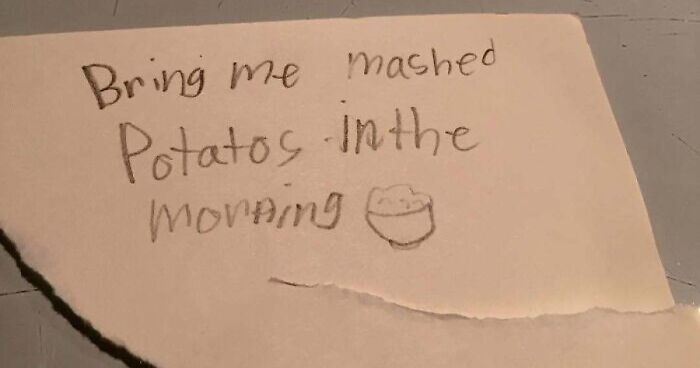 Bring me mashed
Potatos in the
morning